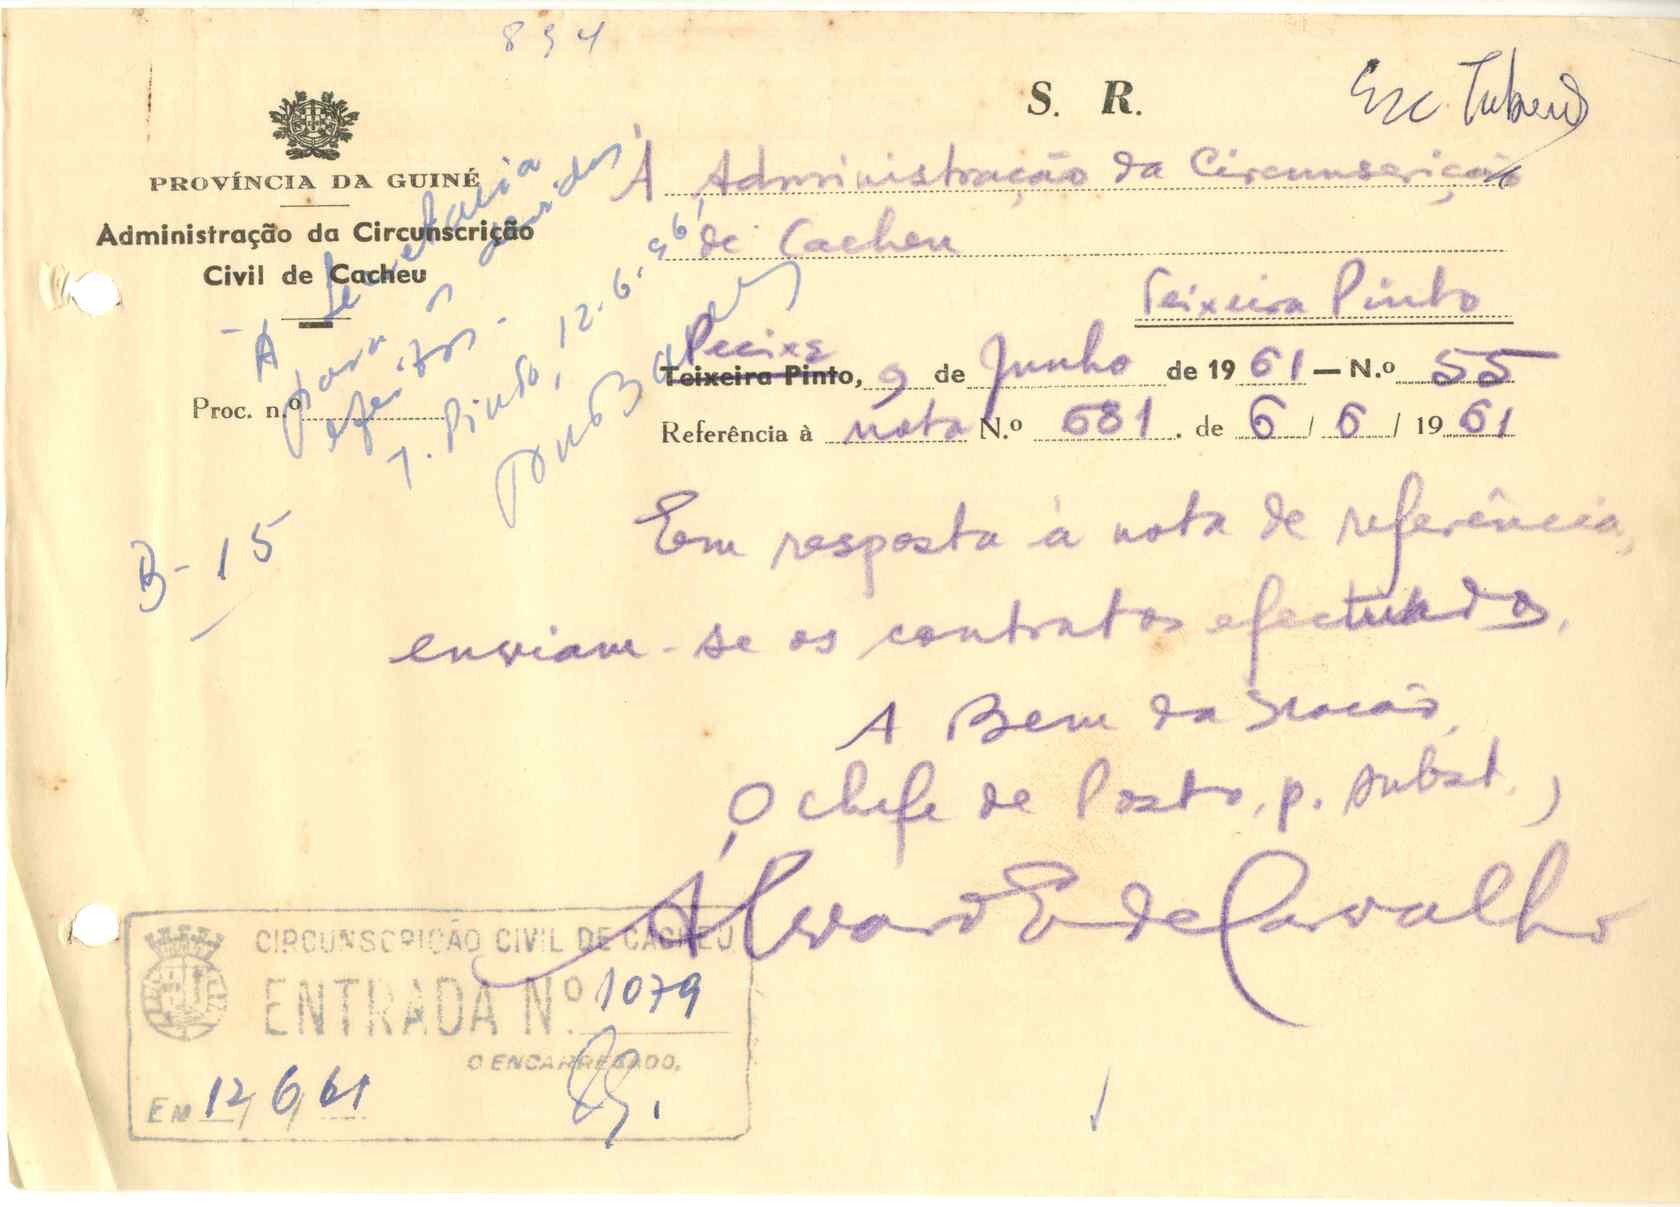 894
S. R.
PROVÍNCIA DA GUINÉ
Administração da Circunscrição
Civil de Cacheu
Proc. n.º
- À Secretaria
para os devidos
efeitos.
T. Pinto, 12.6.96
B-15
À Administração da Circunscrição
de Cacheu
Teixeira Pinto
Pecixe
Teixeira Pinto, 9 de Junho de 1961 — N.º 55
Referência à nota N.º 681. de 6 / 6 / 1961
Em resposta à nota de referência,
enviam-se os contratos efectuados.
A Bem da Nação,
O Chefe de Posto, p. subst.,
Álvaro E. de Carvalho
CIRCUNSCRIÇÃO CIVIL DE CACHEU
ENTRADA N.º 1079
O ENCARREGADO,
EM 12/6/61